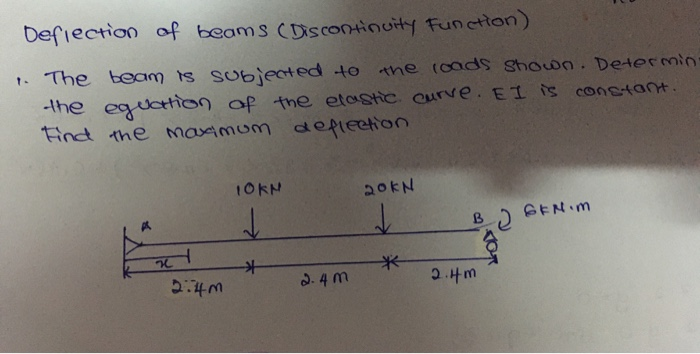 Deflection of beams (Discontinuity Function)
1. The beam is subjected to the loads shown. Determin
the equation of the elastic curve. EI is constant.
Find the maximum deflection
10KN 20KN
A B 6KN.m
x
2.4m 2.4m 2.4m